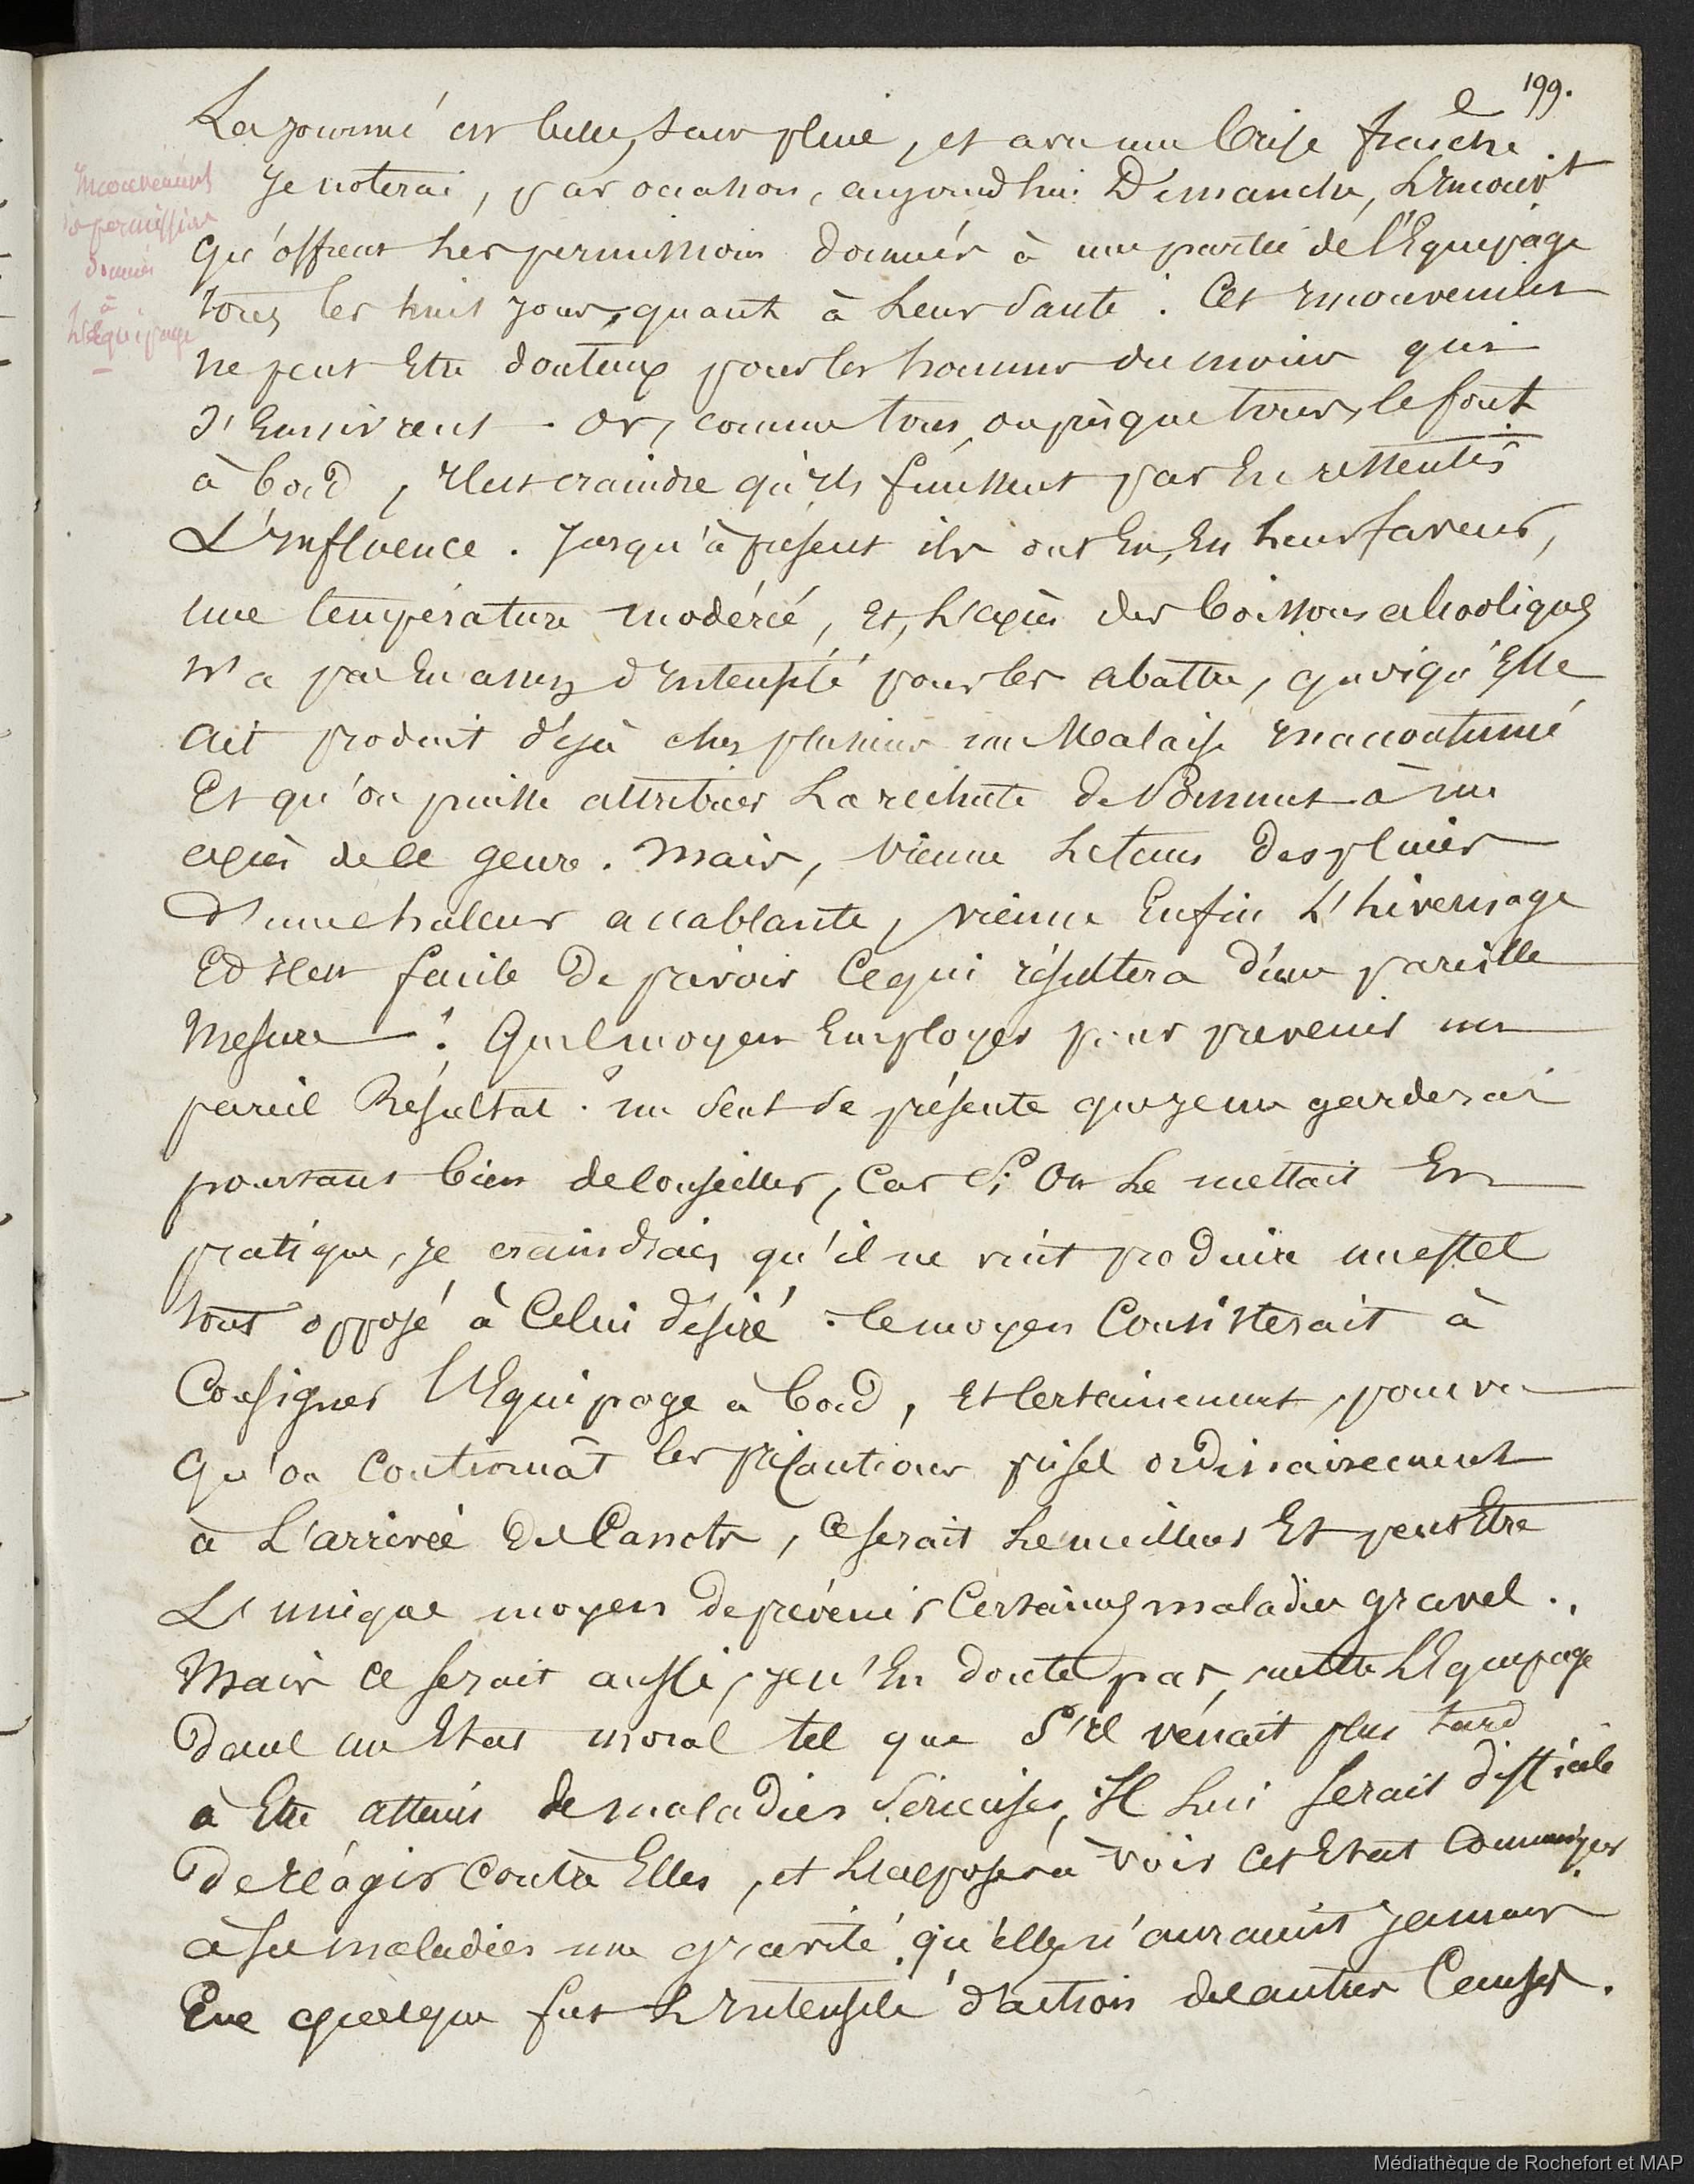 199.
La journé est belle, sans pluie, et avec une brise fraîche.
Inconvénients
de permissions
donnés
à
L'Equipage
Je noterai, par occasion, aujourd'hui Dimanche, L'Inconvt
qu'offrent les permissions donnés à une partie de l'Equipage
tous les huit jours, quant à leur santé. Cet Inconvenient
ne peut Etre douteux pour les hommes du moins qui
s'Ennivrent. Or, comme tous, ou presque tous, le font
à bord, Il est craindre qu'Ils finissent par En ressentir
L'Influence. Jusqu'à présent ils ont Eu, En leur faveur,
une température modérée, Et, L'excès des boissons alcooliques
n'a pas Eu assez d'Intensité pour les abattre, quoiqu'Elle
ait produit déjà chez plusieurs un Malaise Inaccoutumé
Et qu'on puisse attribuer La rechute de à un
excès de ce genre. Mais, vienne le tems des pluies
d'une chaleur accablante, vienne Enfin L'hivernage
Et Il est facile De prévoir ce qui résultera d'une pareille
Mesure! Quel moyen Employer pour prevenir un
pareil Résultat? un seul se présente que je me garderai
pourtant bien de conseiller, Car Si On Le mettait En
pratique, je craindrais qu'il ne vint produire un effet
tout opposé à Celui désiré. le moyen Consisterait à
Consigner l'Equipage à bord, Et Certainement, pourvu
qu'on continuât les précautions prises ordinairement
à L'arrivée Des Canots, Ce serait Le meilleur Et peut Etre
L'unique moyen De prévenir Certaines maladies graves.,
Mais ce serait aussi, je n'En doute pas, mettre L'Equipage
Dans un Etat moral tel que S'il venait plus tard
à Etre atteint de maladies Sérieuses, Il Lui serait difficile
De réagir Contre Elles, et L'exposer à voir cet Etat Communiquer
à ses maladies une gravité qu'elles n'auraient jamais
Eue quelque fut L'Intensité d'action des autres Causes.
Médiathèque de Rochefort et MAP